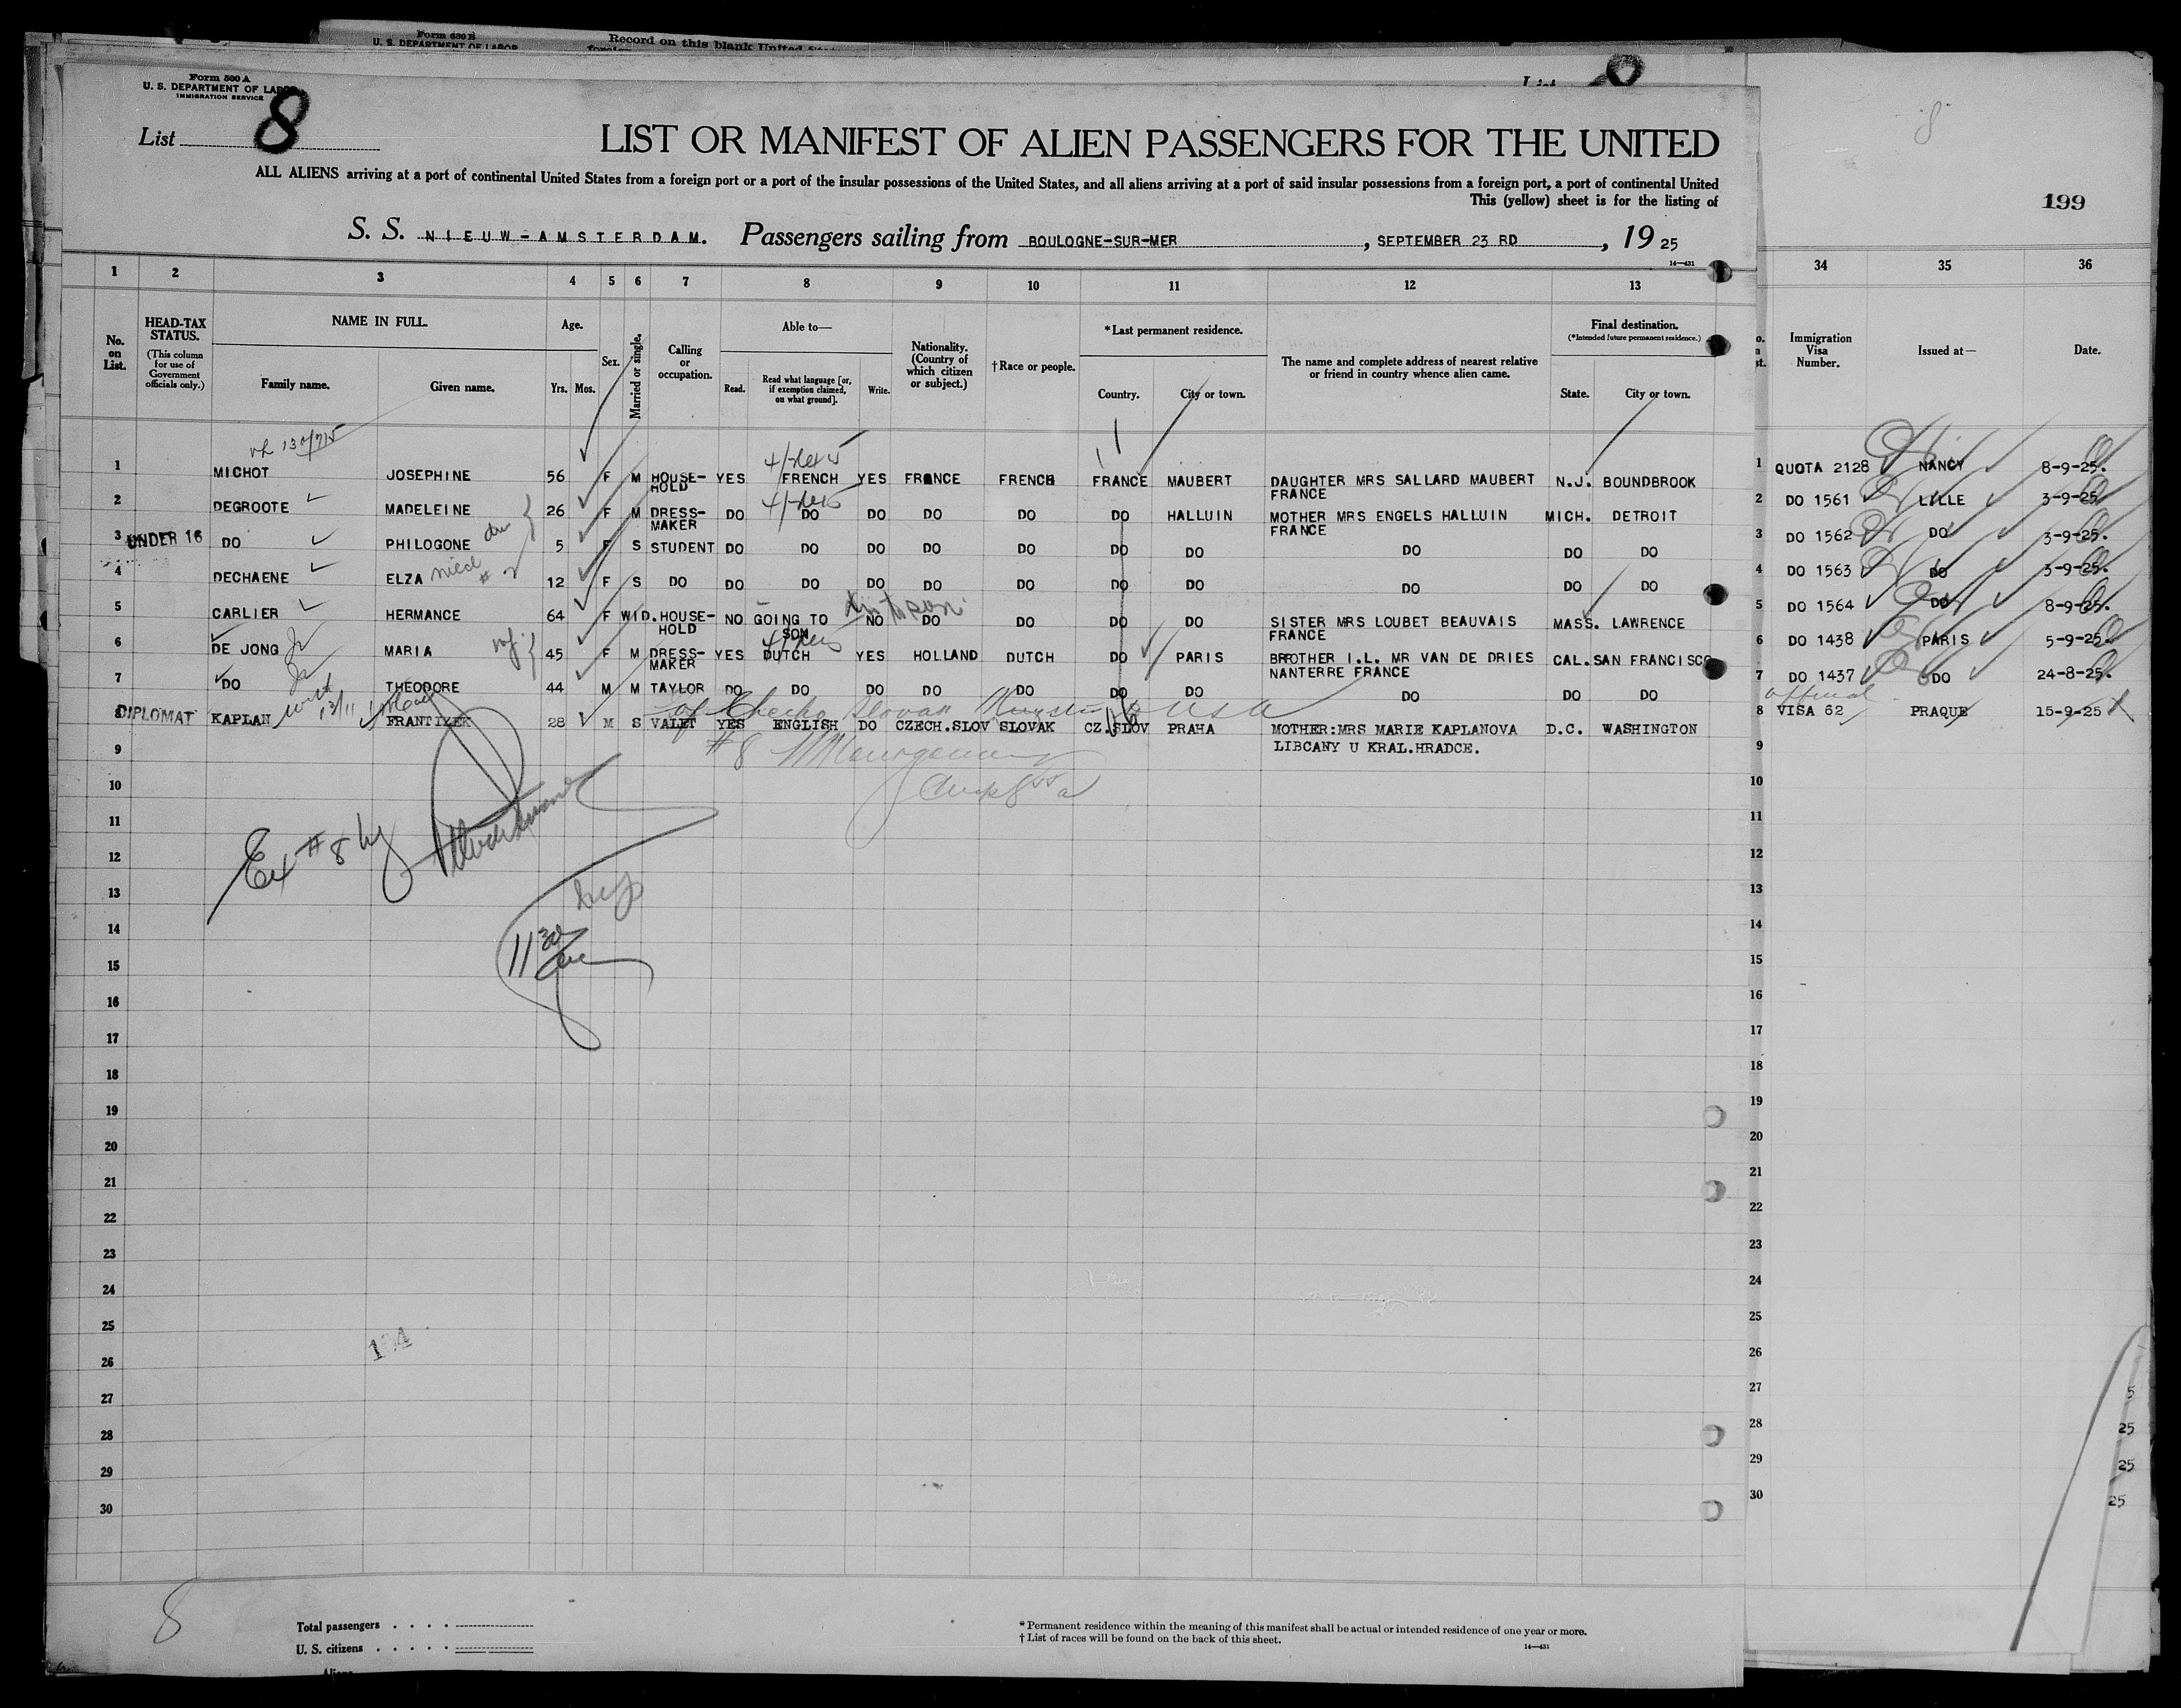 Form 630 B
U. S. DEPARTMENT OF LABOR
Record on this blank United
Form 500 A
U. S. DEPARTMENT OF LABOR
IMMIGRATION SERVICE
List 8
List
8
199
LIST OR MANIFEST OF ALIEN PASSENGERS FOR THE UNITED
ALL ALIENS arriving at a port of continental United States from a foreign port or a port of the insular possessions of the United States, and all aliens arriving at a port of said insular possessions from a foreign port, a port of continental United
This (yellow) sheet is for the listing of
S. S. NIEUW-AMSTERDAM. Passengers sailing from BOULOGNE-SUR-MER, SEPTEMBER 23 RD, 19 25
14—431
1 2 3 4 5 6 7 8 9 10 11 12 13 34 35 36
No. on List.
HEAD-TAX STATUS. (This column for use of Government officials only.)
NAME IN FULL. Family name. Given name.
Age. Yrs. Mos.
Sex.
Married or single.
Calling or occupation.
Able to— Read. Read what language [or, if exemption claimed, on what ground]. Write.
Nationality. (Country of which citizen or subject.)
†Race or people.
*Last permanent residence. Country. City or town.
The name and complete address of nearest relative or friend in country whence alien came.
Final destination. (*Intended future permanent residence.) State. City or town.
Immigration Visa Number.
Issued at—
Date.
1 MICHOT JOSEPHINE 56 F M HOUSE-HOLD YES FRENCH YES FRANCE FRENCH FRANCE MAUBERT DAUGHTER MRS SALLARD MAUBERT FRANCE N.J. BOUNDBROOK 1 QUOTA 2128 NANCY 8-9-25.
2 DEGROOTE MADELEINE 26 F M DRESS-MAKER DO DO DO DO DO DO HALLUIN MOTHER MRS ENGELS HALLUIN FRANCE MICH. DETROIT 2 DO 1561 LILLE 3-9-25.
3 UNDER 16 DO PHILOGONE 5 F S STUDENT DO DO DO DO DO DO DO DO DO DO 3 DO 1562 DO 3-9-25.
4 DECHAENE ELZA niece #2 12 F S DO DO DO DO DO DO DO DO DO DO DO 4 DO 1563 DO 3-9-25.
5 CARLIER HERMANCE 64 F WID. HOUSE-HOLD NO GOING TO SON NO DO DO DO DO SISTER MRS LOUBET BEAUVAIS FRANCE MASS. LAWRENCE 5 DO 1564 DO 8-9-25.
6 DE JONG MARIA 45 F M DRESS-MAKER YES DUTCH YES HOLLAND DUTCH DO PARIS BROTHER I.L. MR VAN DE DRIES NANTERRE FRANCE CAL. SAN FRANCISCO 6 DO 1438 PARIS 5-9-25.
7 DO THEODORE 44 M M TAYLOR DO DO DO DO DO DO DO DO DO DO 7 DO 1437 DO 24-8-25.
of Checho Slovak USA
official
8 DIPLOMAT KAPLAN FRANTIZEK 28 M S VALET YES ENGLISH DO CZECH.SLOV SLOVAK CZ.SLOV PRAHA MOTHER:MRS MARIE KAPLANOVA D.C. WASHINGTON 8 VISA 62 PRAQUE 15-9-25
LIBCANY U KRAL.HRADCE.
9 #8 9
10 10
11 11
12 Ex #8 by 12
13 13
14 14
15 11 30 15
16 16
17 17
18 18
19 19
20 20
21 21
22 22
23 23
24 24
25 25
26 26
27 27
28 28
29 29
30 30
25
25
25
8
Total passengers . . . .
U. S. citizens . . . . .
Aliens
*Permanent residence within the meaning of this manifest shall be actual or intended residence of one year or more.
†List of races will be found on the back of this sheet.
14—431